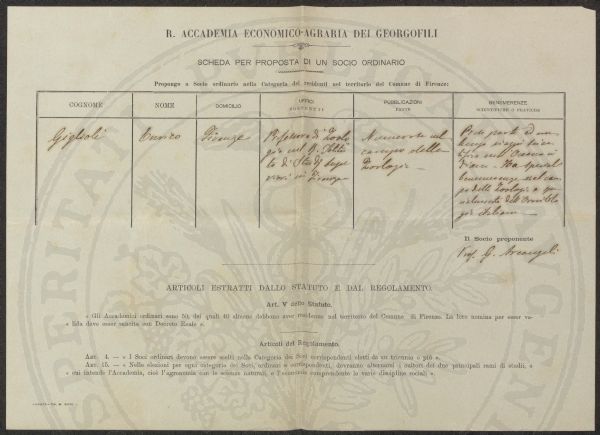 R. ACCADEMIA ECONOMICO-AGRARIA DEI GEORGOFILI
SCHEDA PER PROPOSTA DI UN SOCIO ORDINARIO
Propongo a Socio ordinario nella Categoria dei residenti nel territorio del Comune di Firenze:
COGNOME
NOME
DOMICILIO
UFFICI
SOSTENUTI
PUBBLICAZIONI
FATTE
BENEMERENZE
SCIENTIFICHE O PRATICHE
Giglioli
Enrico
Firenze
Professore di Zoolo-
gia nel R. Istitu-
to di Studj supe-
riori in Firenze
Numerose nel
campo della
Zoologia
Prese parte ad un
lungo viaggio
Ha speciali
benemerenze nel cam-
po della Zoologia e
dell'Ornitolo-
gia italiana
Il Socio proponente
Prof. G. Arcangeli
ARTICOLI ESTRATTI DALLO STATUTO E DAL REGOLAMENTO.
Art. V dello Statuto.
« Gli Accademici ordinari sono 50, dei quali 40 almeno debbono aver residenza nel territorio del Comune di Firenze. La loro nomina per esser va-
« lida deve esser sancita con Decreto Reale ».
Articoli del Regolamento.
ART. 4. — « I Soci ordinari devono essere scelti nella Categoria dei Soci corrispondenti eletti da un triennio o più ».
ART. 15. — « Nelle elezioni per ogni categoria dei Soci, ordinari e corrispondenti, dovranno alternarsi i cultori dei due principali rami di studii, a
« cui intende l'Accademia, cioè l'agronomia con le scienze naturali, e l'economia comprendente le varie discipline sociali ».